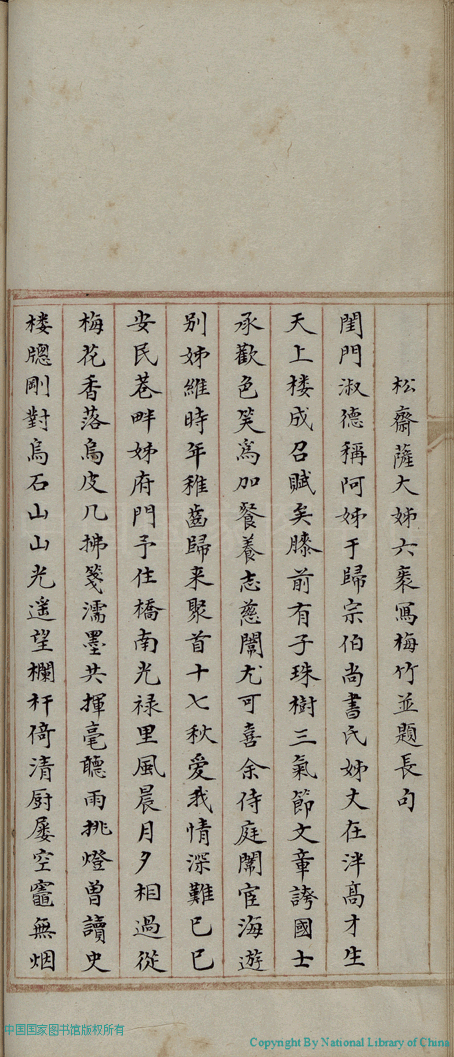 松齋薩大姊六袠寫梅竹並題長句
閨門淑德稱阿姊于歸宗伯尚書氏姊丈在泮高才生
天上楼成召賦矣膝前有子珠樹三氣節文章誇國士
承歡色笑爲加餐養志慈闈尤可喜余侍庭闈宦海遊
别姊維時年稚齒歸来聚首十七秋愛我情深難已已
安民巷畔姊府門予住橋南光禄里風晨月夕相過從
梅花香落烏皮几拂箋濡墨共揮毫聽雨挑燈曽讀史
楼牕剛對烏石山山光遥望欄杆倚清厨屡空竈無烟
中国国家图书馆版权所有
Copyright By National Library of China